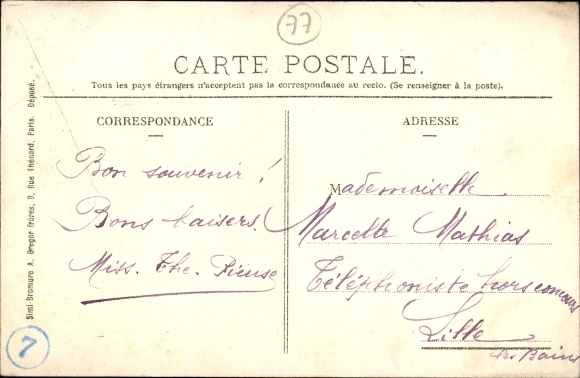 77
CARTE POSTALE.
Tous les pays étrangers n'acceptent pas la correspondance au recto. (Se renseigner à la poste).
CORRESPONDANCE
Bon souvenir !
Bons baisers.
Miss. The. Rieuse
ADRESSE
Mademoiselle
Marcelle Mathias
Téléphoniste hors concours
Lille
les Bains
Simi-Bromure A. Breger frères, 9, Rue Thénard, Paris. Déposé.
7